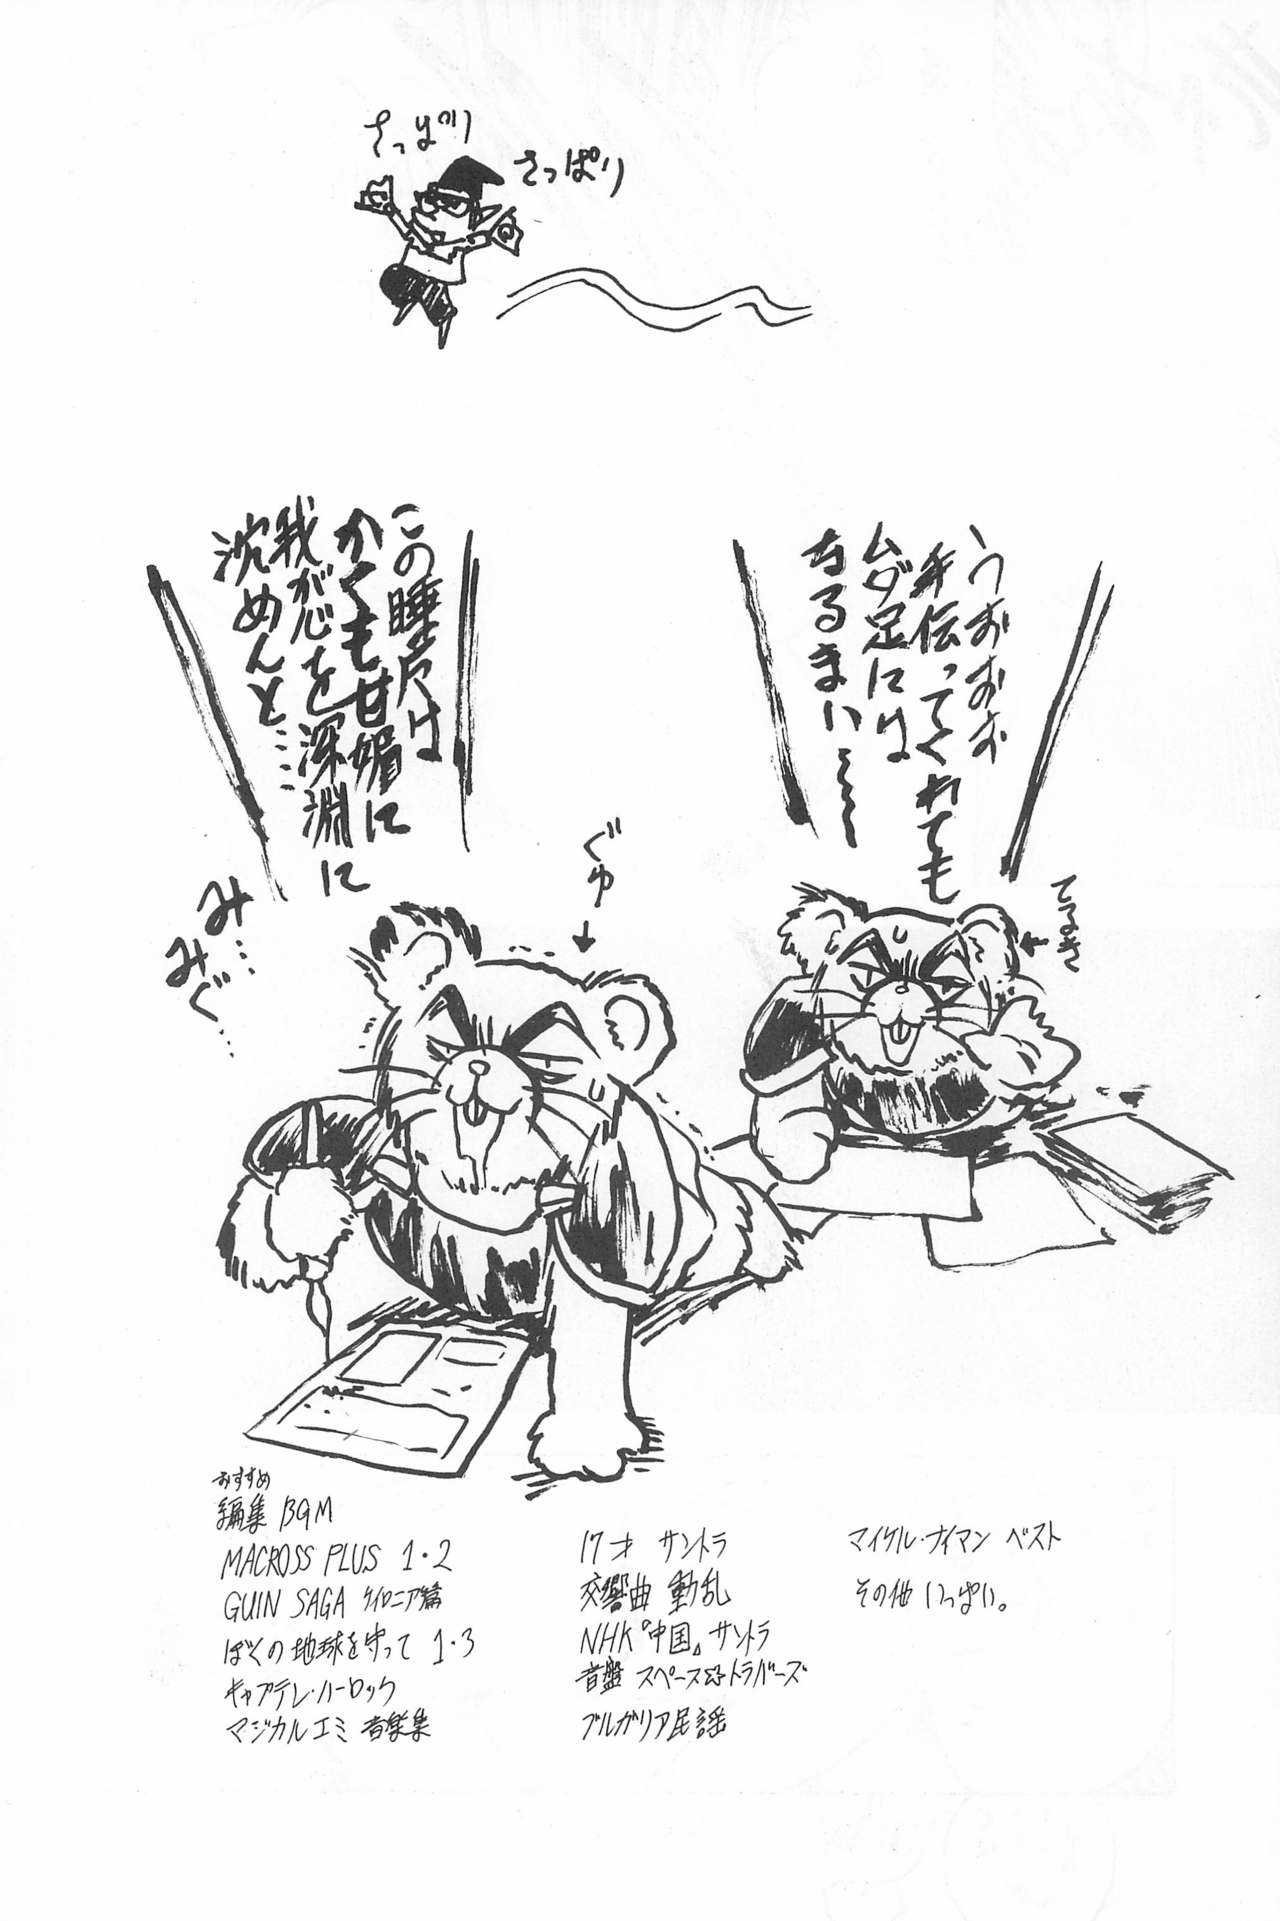 さっぱり
さっぱり
うおおおお
手伝ってくれても
ムダ足には
なるまい〜〜〜
てるき
この睡尺は
かくも甘媚に
我が心を深淵に
沈めんと……
ぐゅ
みみ…
ぐ…
おすすめ
編集 BGM
MACROSS PLUS 1・2
GUIN SAGA ケイロニア篇
ぼくの地球を守って 1・3
キャプテン・ハーロック
マジカルエミ 音楽集
17才 サントラ
交響曲 動乱
NHK『中国』サントラ
音盤 スペース☆トラバーズ
ブルガリア民謡
マイケル・ナイマン ベスト
その他 いっぱい。